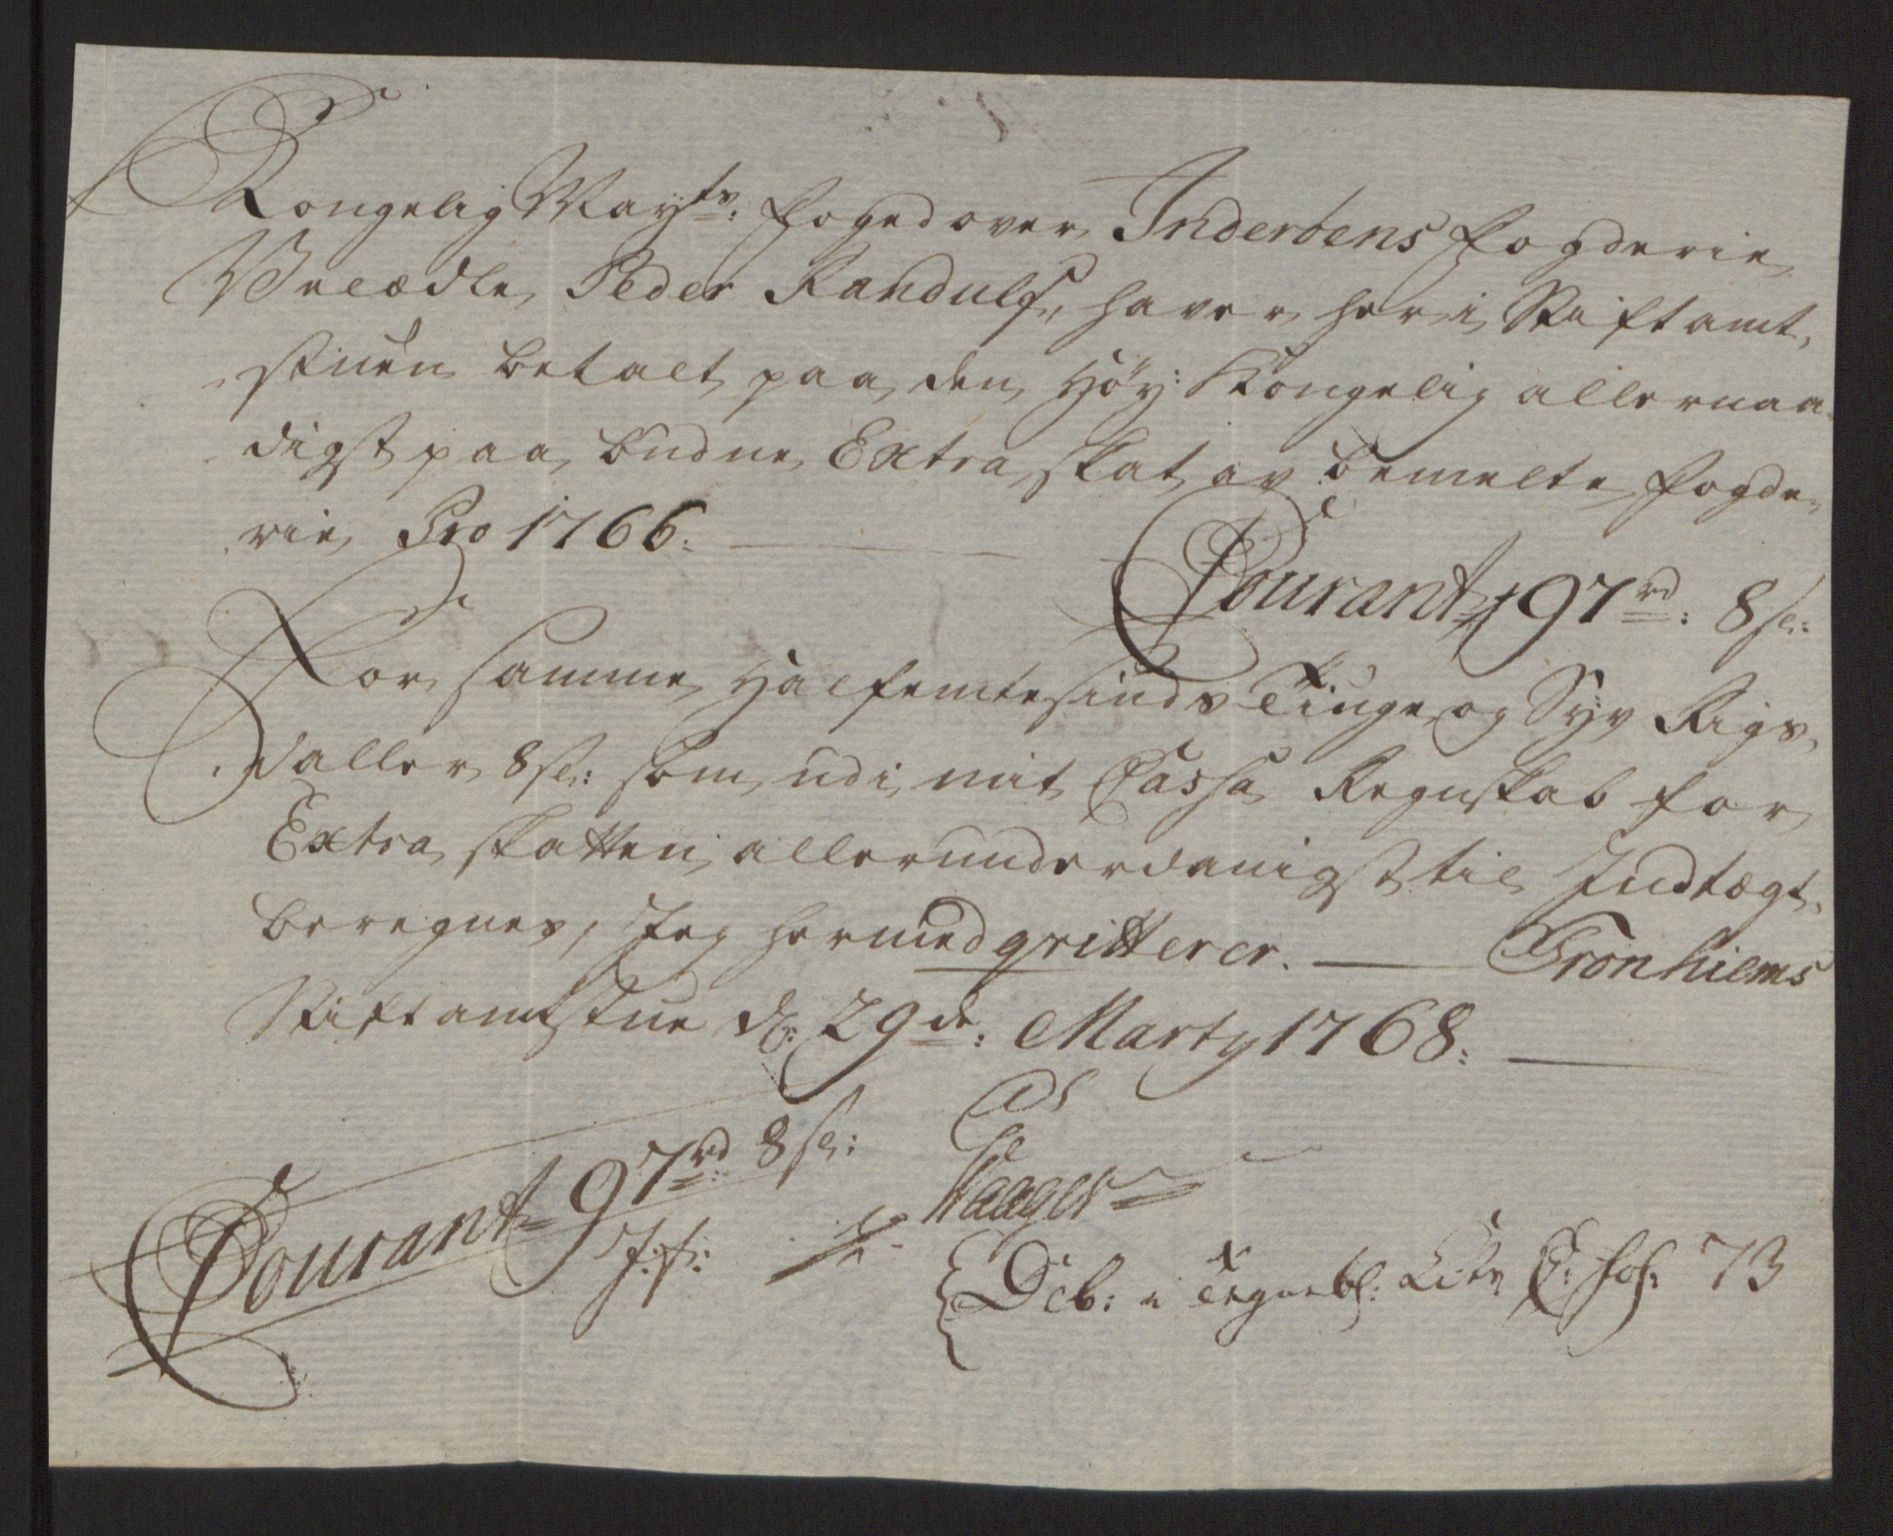 Kongelig Mayts: foged over Inderöens fogderie
Velædle Peder Randulf, haver her i Stiftamt,
stuen betalt paa den Höy: Kongelig allernaa
digst paa budne Extra skat av bemelte fogde,
rie Pro 1766.
Courant 97 rd: 8 sl:
For samme Halfemtesinds Tiuge og Syv Rigs,
daller 8 sl: som udi mit Cassa Regnskab for
Extra skatten allerunderdanigst til Indtægt
beregnes, Jeg hermed qvitterer. Tronhiems
Stiftamtstue d: 29de: Marty 1768.
Courant 97 rd 8 sl:
Haager
Deb: i Tegnebl: Litr C: fol: 73